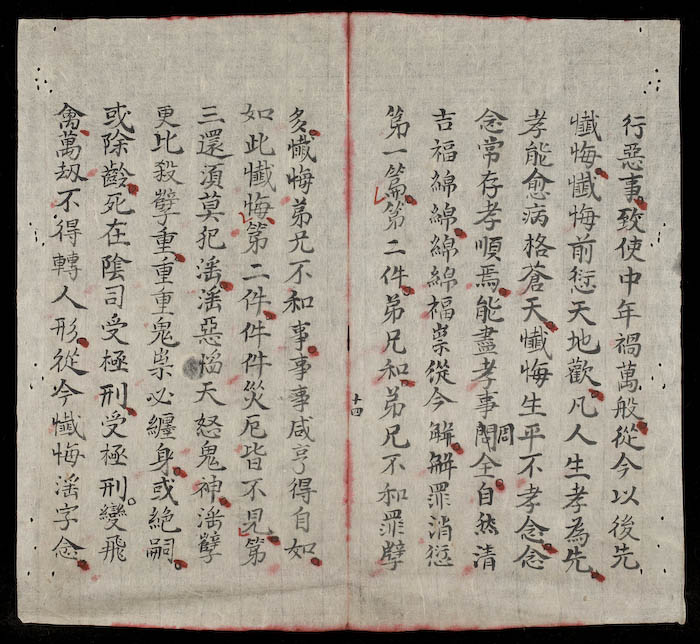 行惡事致使中年禍萬般從今以後先
懺悔懺悔前愆天地歡凡人生孝為先
孝能愈病格蒼天懺悔生平不孝念念
念常存孝順焉能盡孝事周全自然清
吉福綿綿綿綿福祟從今解解罪消愆
第一篇第二件弟兄和弟兄不和罪孽
十四
多懺悔弟兄不和事事事咸亨得自如
如此懺悔第二件件件災厄皆不見第
三還須莫犯淫淫惡慆天怒鬼神淫孽
更比殺孽重重重鬼祟必纏身或絕嗣
或除齡死在陰司受極刑受極刑變飛
禽萬刼不得轉人形從今懺悔淫字念